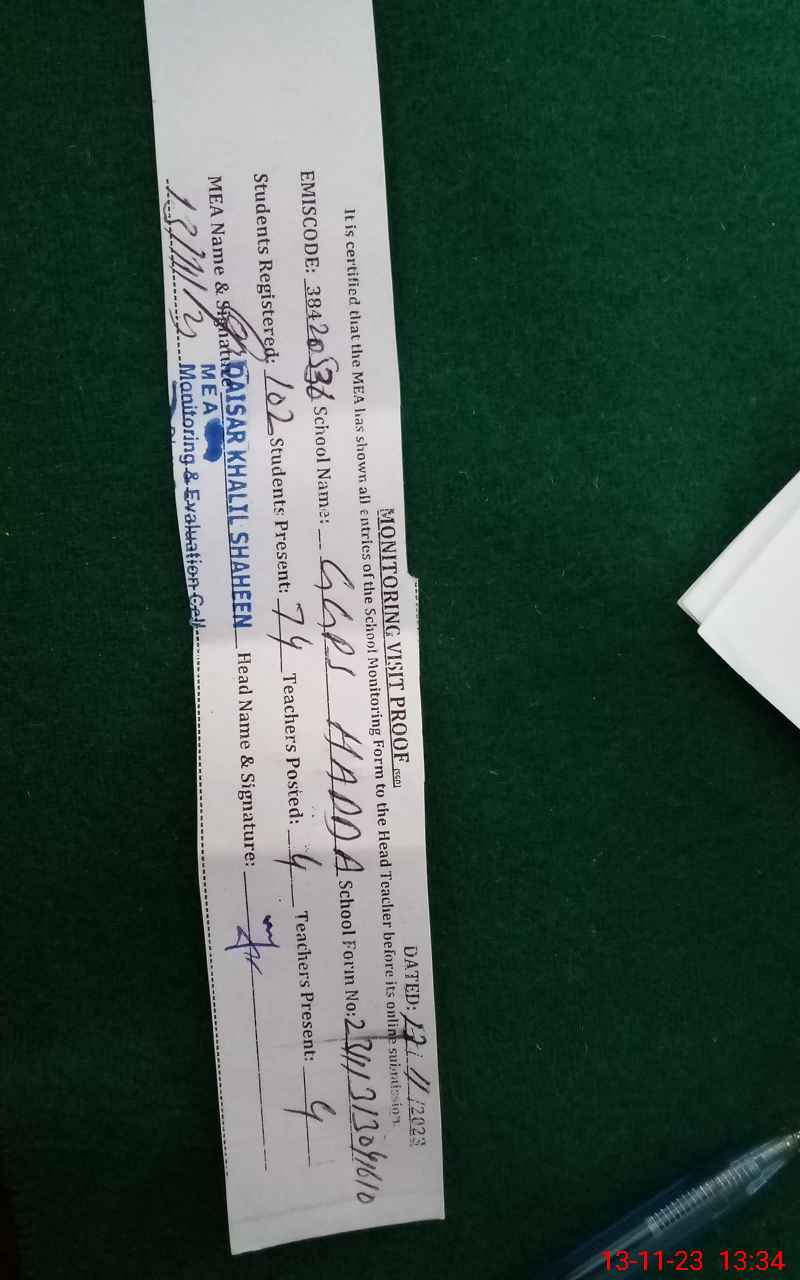 MONITORING VISIT PROOF
DATED: 13/11/2023
It is certified that the MEA has shown all entries of the School Monitoring Form to the Head Teacher before its online submission.
EMISCODE: 38420536 School Name: GGPS HADDA School Form No:
Students Registered: 102 Students Present: 74 Teachers Posted: 4 Teachers Present: 4
MEA Name & Signature QAISAR KHALIL SHAHEEN Head Name & Signature:
MEA
13/11/23 Monitoring & Evaluation Cell
13-11-23 13:34